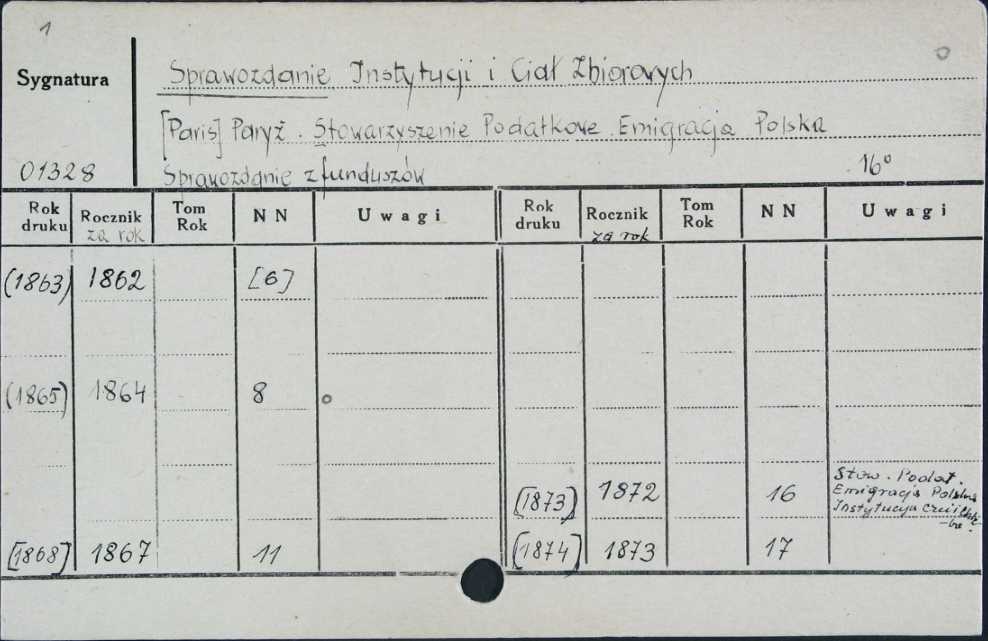 1
Sygnatura
Sprawozdanie Instytucji i Ciał Zbiorowych
[Paris] Paryż. Stowarzyszenie Podatkowe. Emigracja Polska
01328
Sprawozdanie z funduszów
16°
Rok druku Rocznik za rok Tom Rok NN Uwagi Rok druku Rocznik za rok Tom Rok NN Uwagi
(1863) 1862 [6]
(1865) 1864 8
[1873) 1872 16 Stow. Podat. Emigracja Polska Instytucja
[1868] 1867 11 [1874] 1873 17